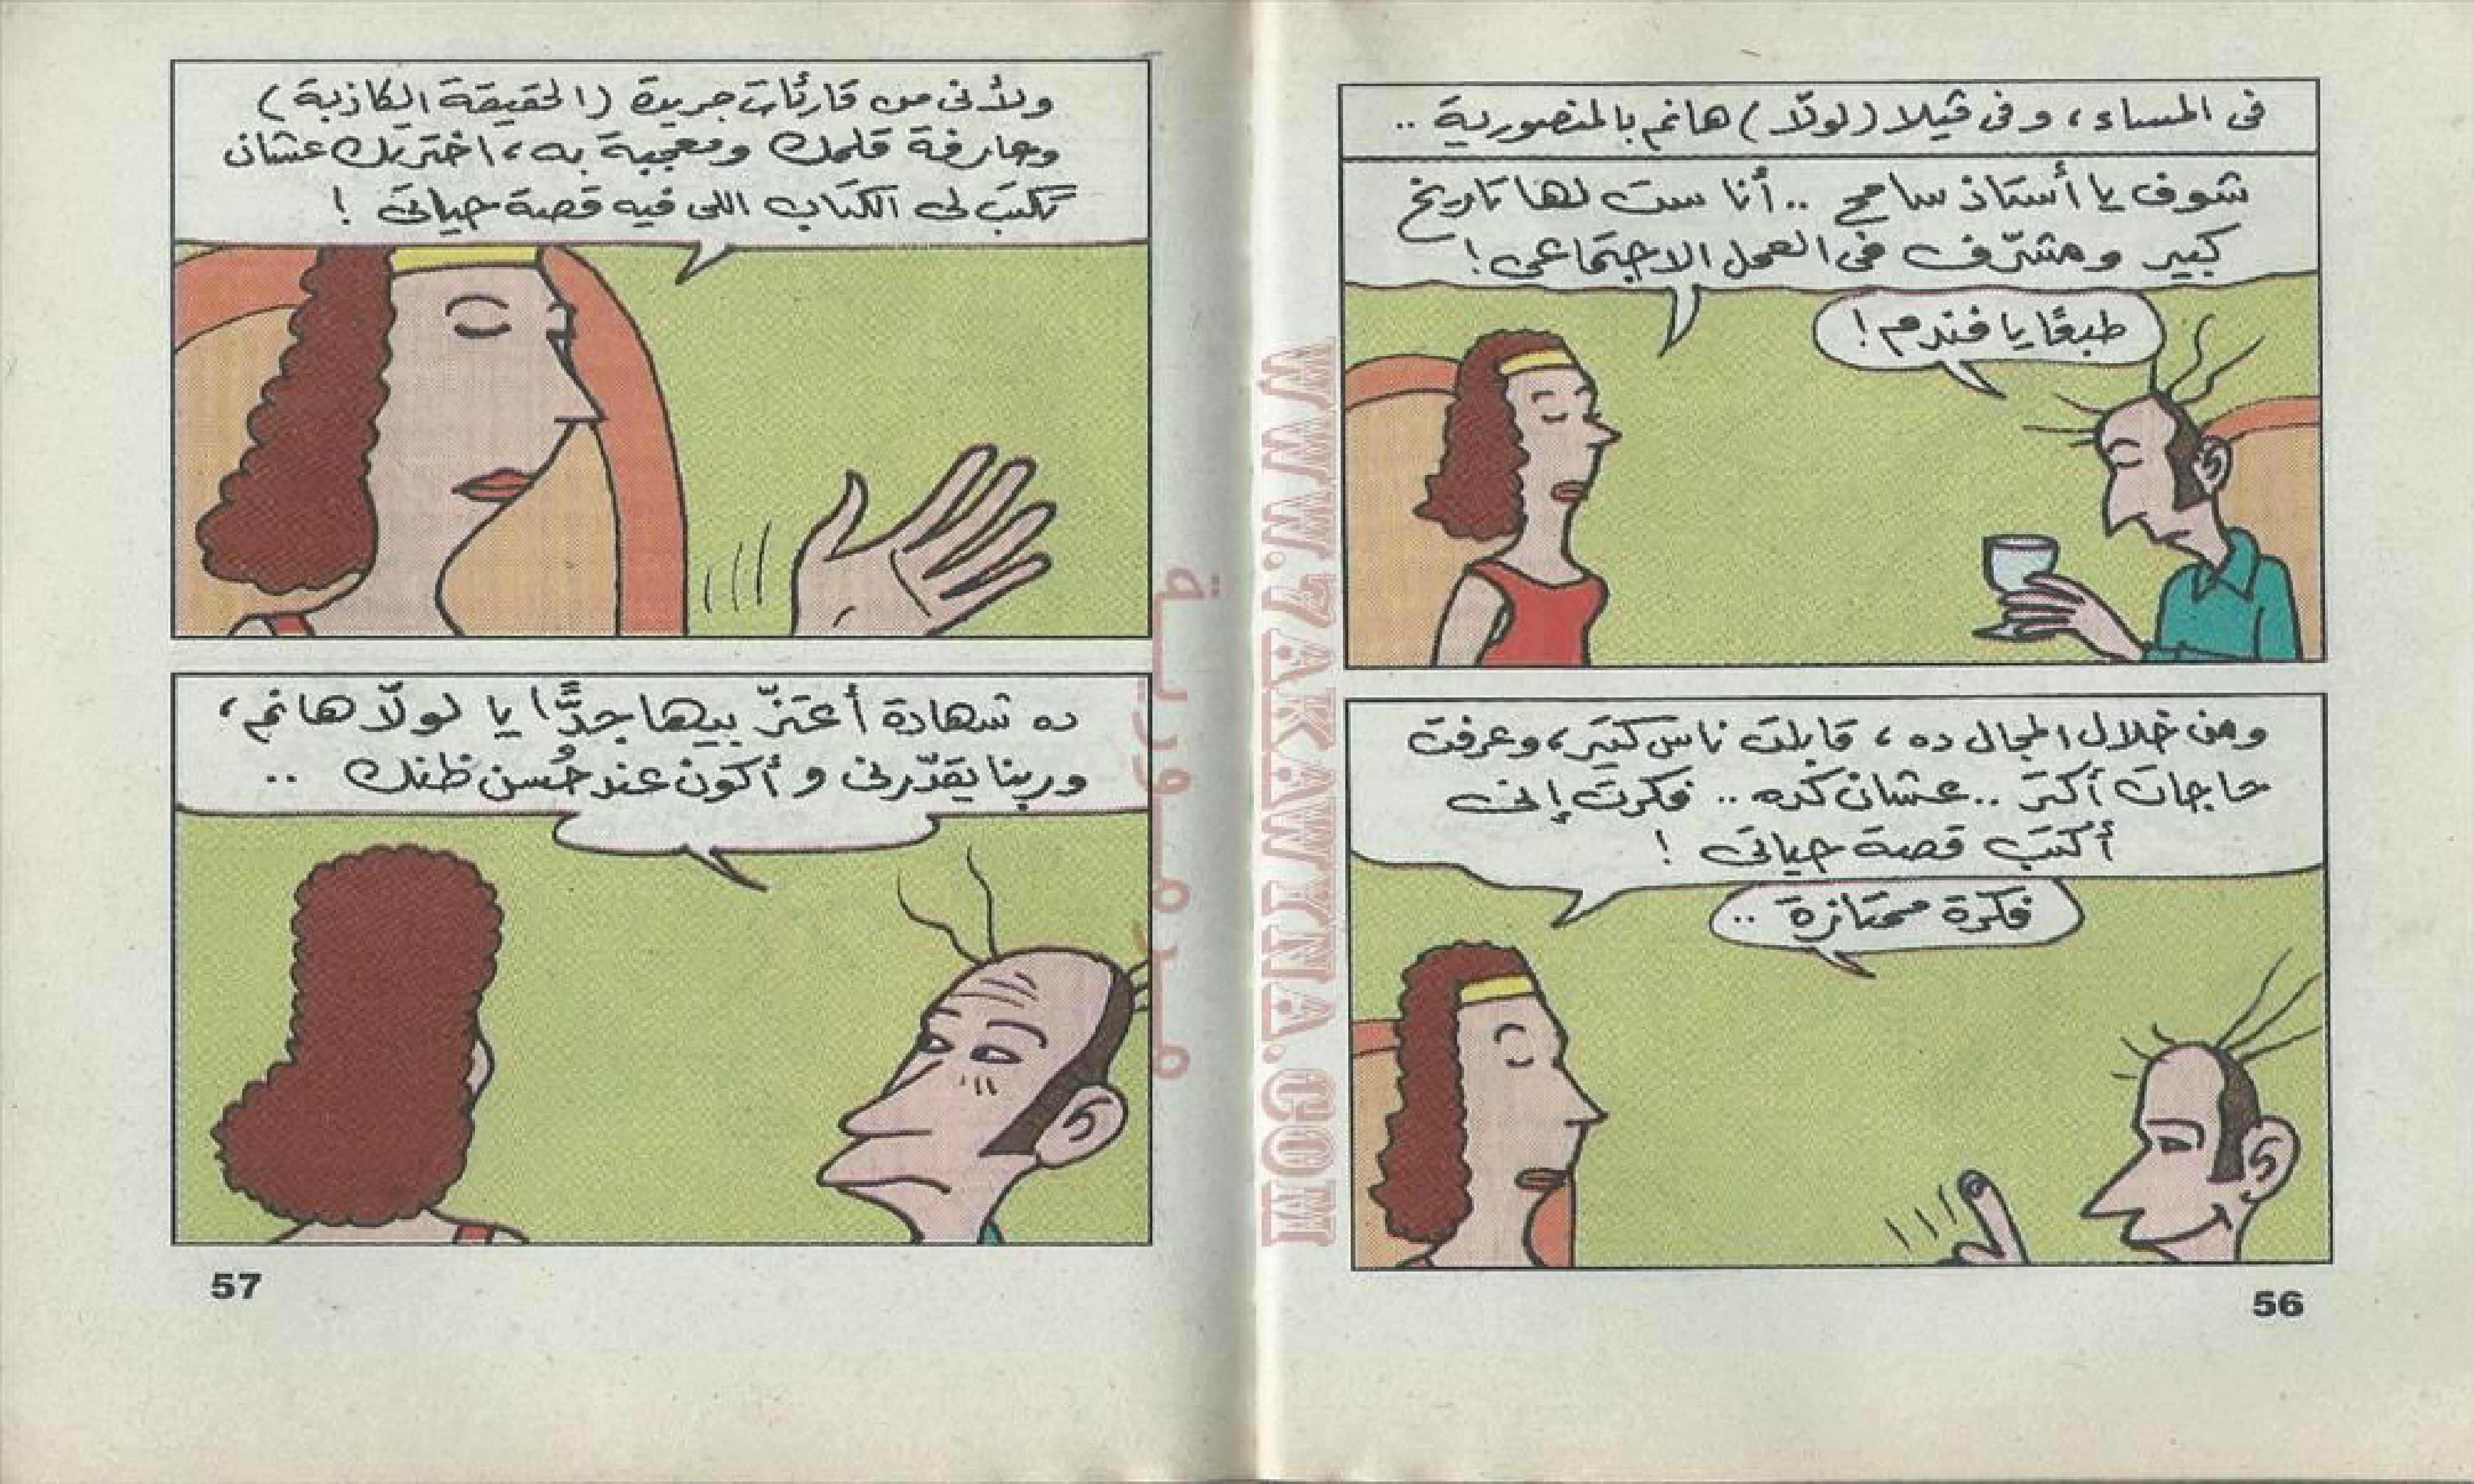 فى المساء، وفى ڤيلا (لولّا) هانم بالمنصورية ..
شوف يا أستاذ سامح .. أنا ست لها تاريخ
كبير ومشرّف فى العمل الاجتماعى!
طبعًا يا فندم!
ومن خلال المجال ده، قابلت ناس كتير، وعرفت
حاجات أكتر .. عشان كده .. فكرت إنى
أكتب قصة حياتى!
فكرة ممتازة ..
56
ولأنى من قارئات جريدة (الحقيقة الكاذبة)
وعارفة قلمك ومعجبة به، اخترتك عشان
تكتب لى الكتاب اللى فيه قصة حياتى!
ده شهادة أعتزّ بيها جدًّا يا لولّا هانم،
وربنا يقدّرنى وأكون عند حُسن ظنك ..
57
WWW.7AKAWINA.COM